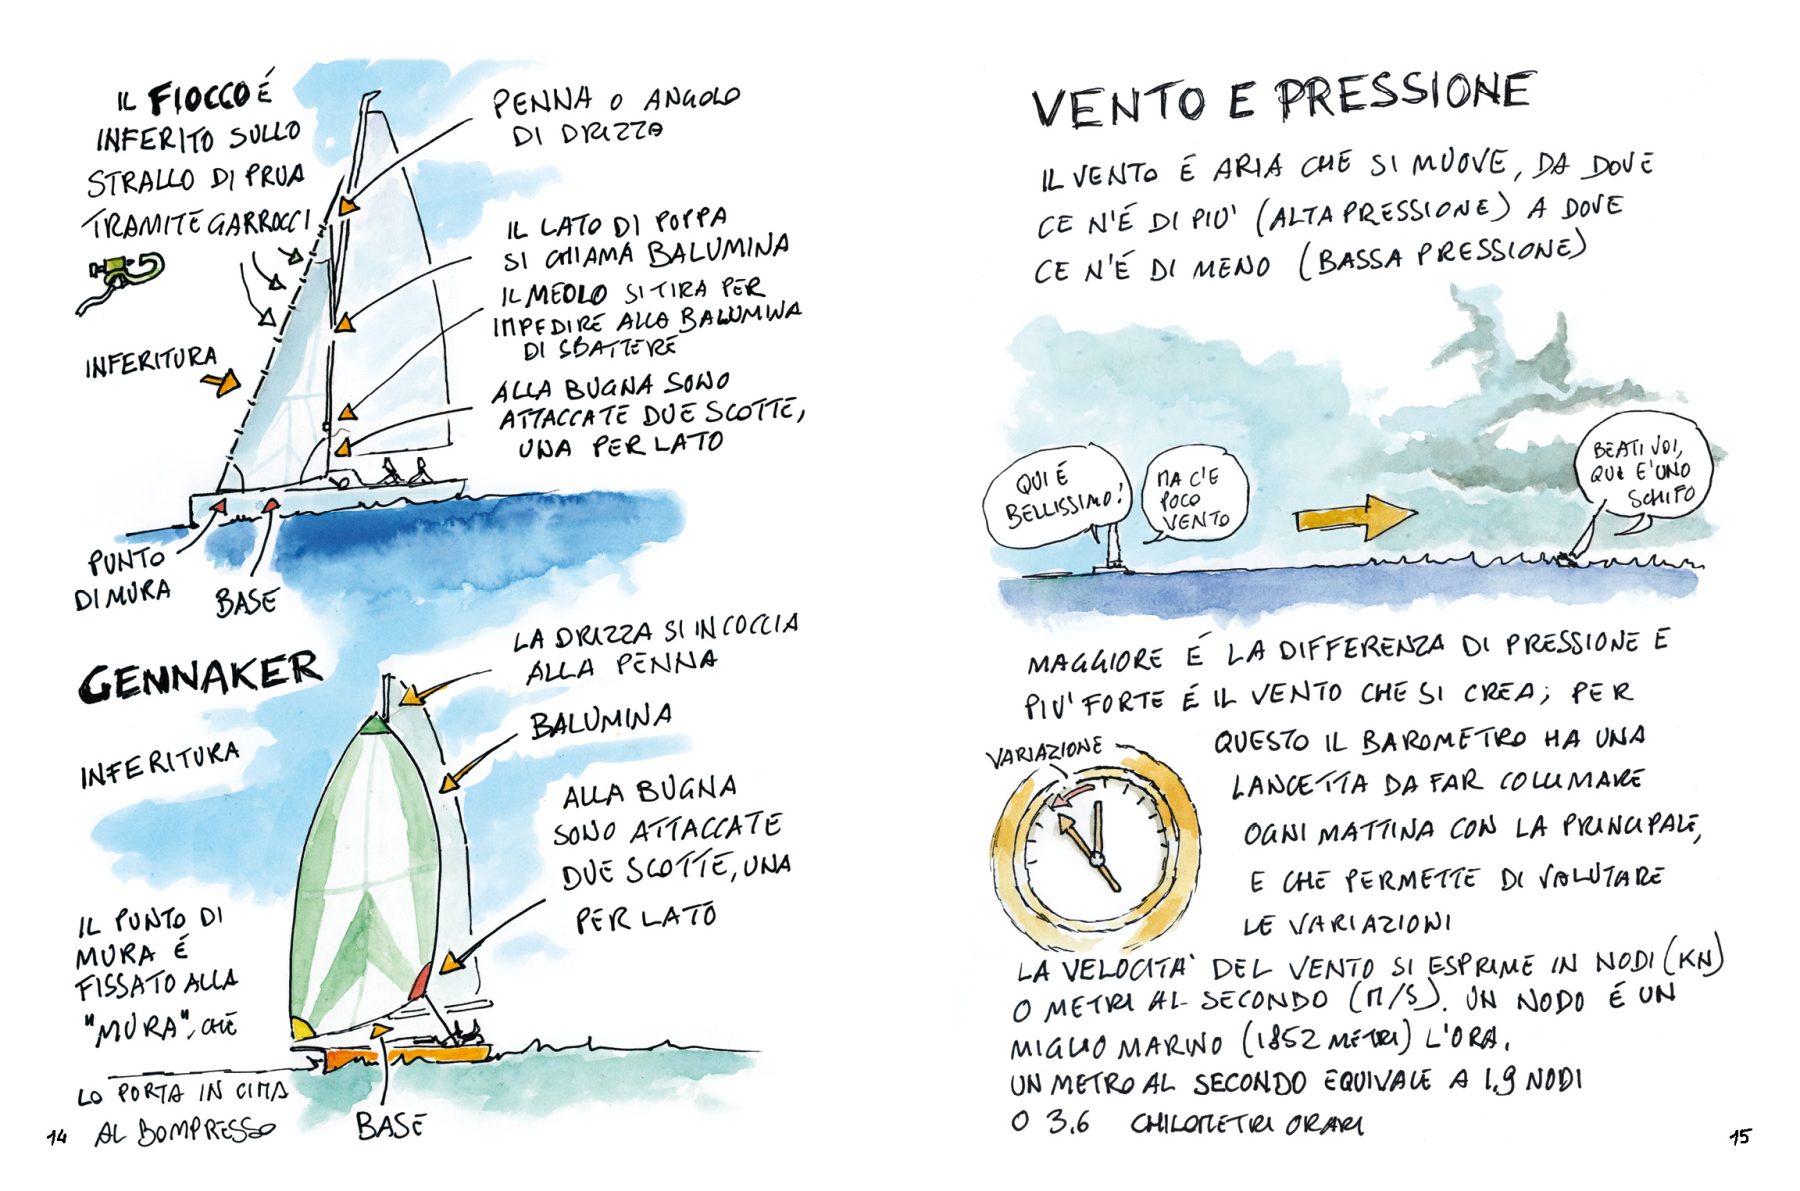 IL FIOCCO É
INFERITO SULLO
STRALLO DI PRUA
TRAMITE GARROCCI
INFERITURA
PUNTO
DI MURA
BASE
PENNA O ANGOLO
DI DRIZZA
IL LATO DI POPPA
SI CHIAMA BALUMINA
IL MEOLO SI TIRA PER
IMPEDIRE ALLA BALUMINA
DI SBATTERE
ALLA BUGNA SONO
ATTACCATE DUE SCOTTE,
UNA PER LATO
GENNAKER
INFERITURA
IL PUNTO DI
MURA É
FISSATO ALLA
"MURA", CHE
LO PORTA IN CIMA
AL BOMPRESSO
LA DRIZZA SI INCOCCIA
ALLA PENNA
BALUMINA
ALLA BUGNA
SONO ATTACCATE
DUE SCOTTE, UNA
PER LATO
BASE
14
VENTO E PRESSIONE
IL VENTO É ARIA CHE SI MUOVE, DA DOVE
CE N'É DI PIU' (ALTA PRESSIONE) A DOVE
CE N'É DI MENO (BASSA PRESSIONE)
QUI É
BELLISSIMO!
MA C'E
POCO
VENTO
BEATI VOI,
QUI E' UNO
SCHIFO
MAGGIORE É LA DIFFERENZA DI PRESSIONE E
PIU' FORTE É IL VENTO CHE SI CREA; PER
QUESTO IL BAROMETRO HA UNA
LANCETTA DA FAR COLLIMARE
OGNI MATTINA CON LA PRINCIPALE,
E CHE PERMETTE DI VALUTARE
LE VARIAZIONI
VARIAZIONE
LA VELOCITA' DEL VENTO SI ESPRIME IN NODI (KN)
O METRI AL SECONDO (M/S). UN NODO É UN
MIGLIO MARINO (1852 METRI) L'ORA.
UN METRO AL SECONDO EQUIVALE A 1,9 NODI
O 3.6 CHILOMETRI ORARI
15